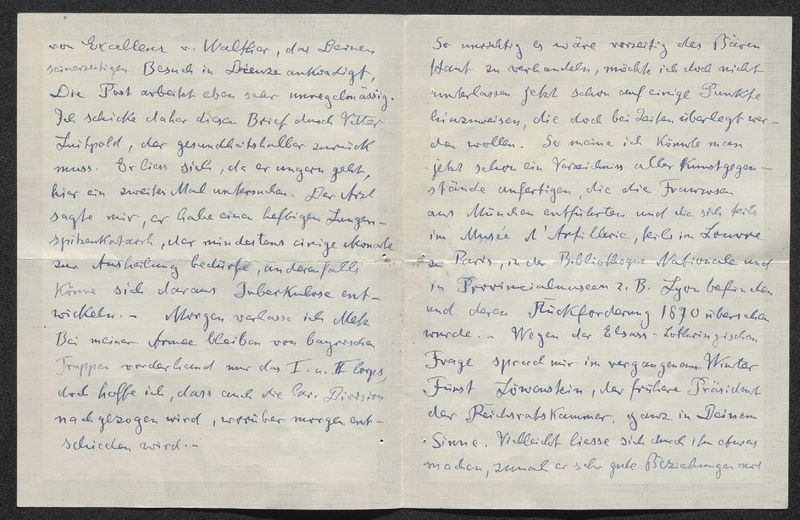 von Excellenz v. Walther, das Deinen
seinerzeitigen Besuch in Dieuze ankündigt,
Die Post arbeitet eben sehr unregelmässig.
Ich schicke daher diesen Brief durch Vetter
Luitpold, der gesundheitshalber zurück
muss. Er liess sich, da er ungern geht,
hier ein zweites Mal untersuchen. Der Arzt
sagte mir, er habe einen heftigen Lungen-
spitzenkatarrh, der mindestens einige Monate
zur Ausheilung bedürfe, anderenfalls
könne sich daraus Tuberkulose ent-
wickeln. - Morgen verlasse ich Metz
Bei meiner Armee bleiben von bayrischen
Truppen vorderhand nur das I. u. II Corps,
doch hoffe ich, dass auch die Cav. Division
nachgezogen wird, worüber morgen ent-
schieden wird. -
So unrichtig es wäre vorzeitig des Bären
Haut zu verhandeln, möchte ich doch nicht
unterlassen jetzt schon auf einige Punkte
hinzuweisen, die doch bei Zeiten überlegt wer-
den wollen. So meine ich könnte man
jetzt schon ein Verzeichniss aller Kunstgegen-
stände anfertigen, die die Franzosen
aus München entführten und die sich teils
im Musée d'Artillerie, teils im Louvre
zu Paris, in der Bibliotheque Nationale und
in Provincialmuseen z. B. Lyon befinden
und deren Rückforderung 1870 übersehen
wurde. - Wegen der Elsass-Lothringischen
Frage sprach mir im vergangenen Winter
Fürst Löwenstein, der frühere Präsident
der Reichsratskammer, ganz in Deinem
Sinne. Vielleicht liesse sich durch ihn etwas
machen, zumal er sehr gute Beziehungen mit